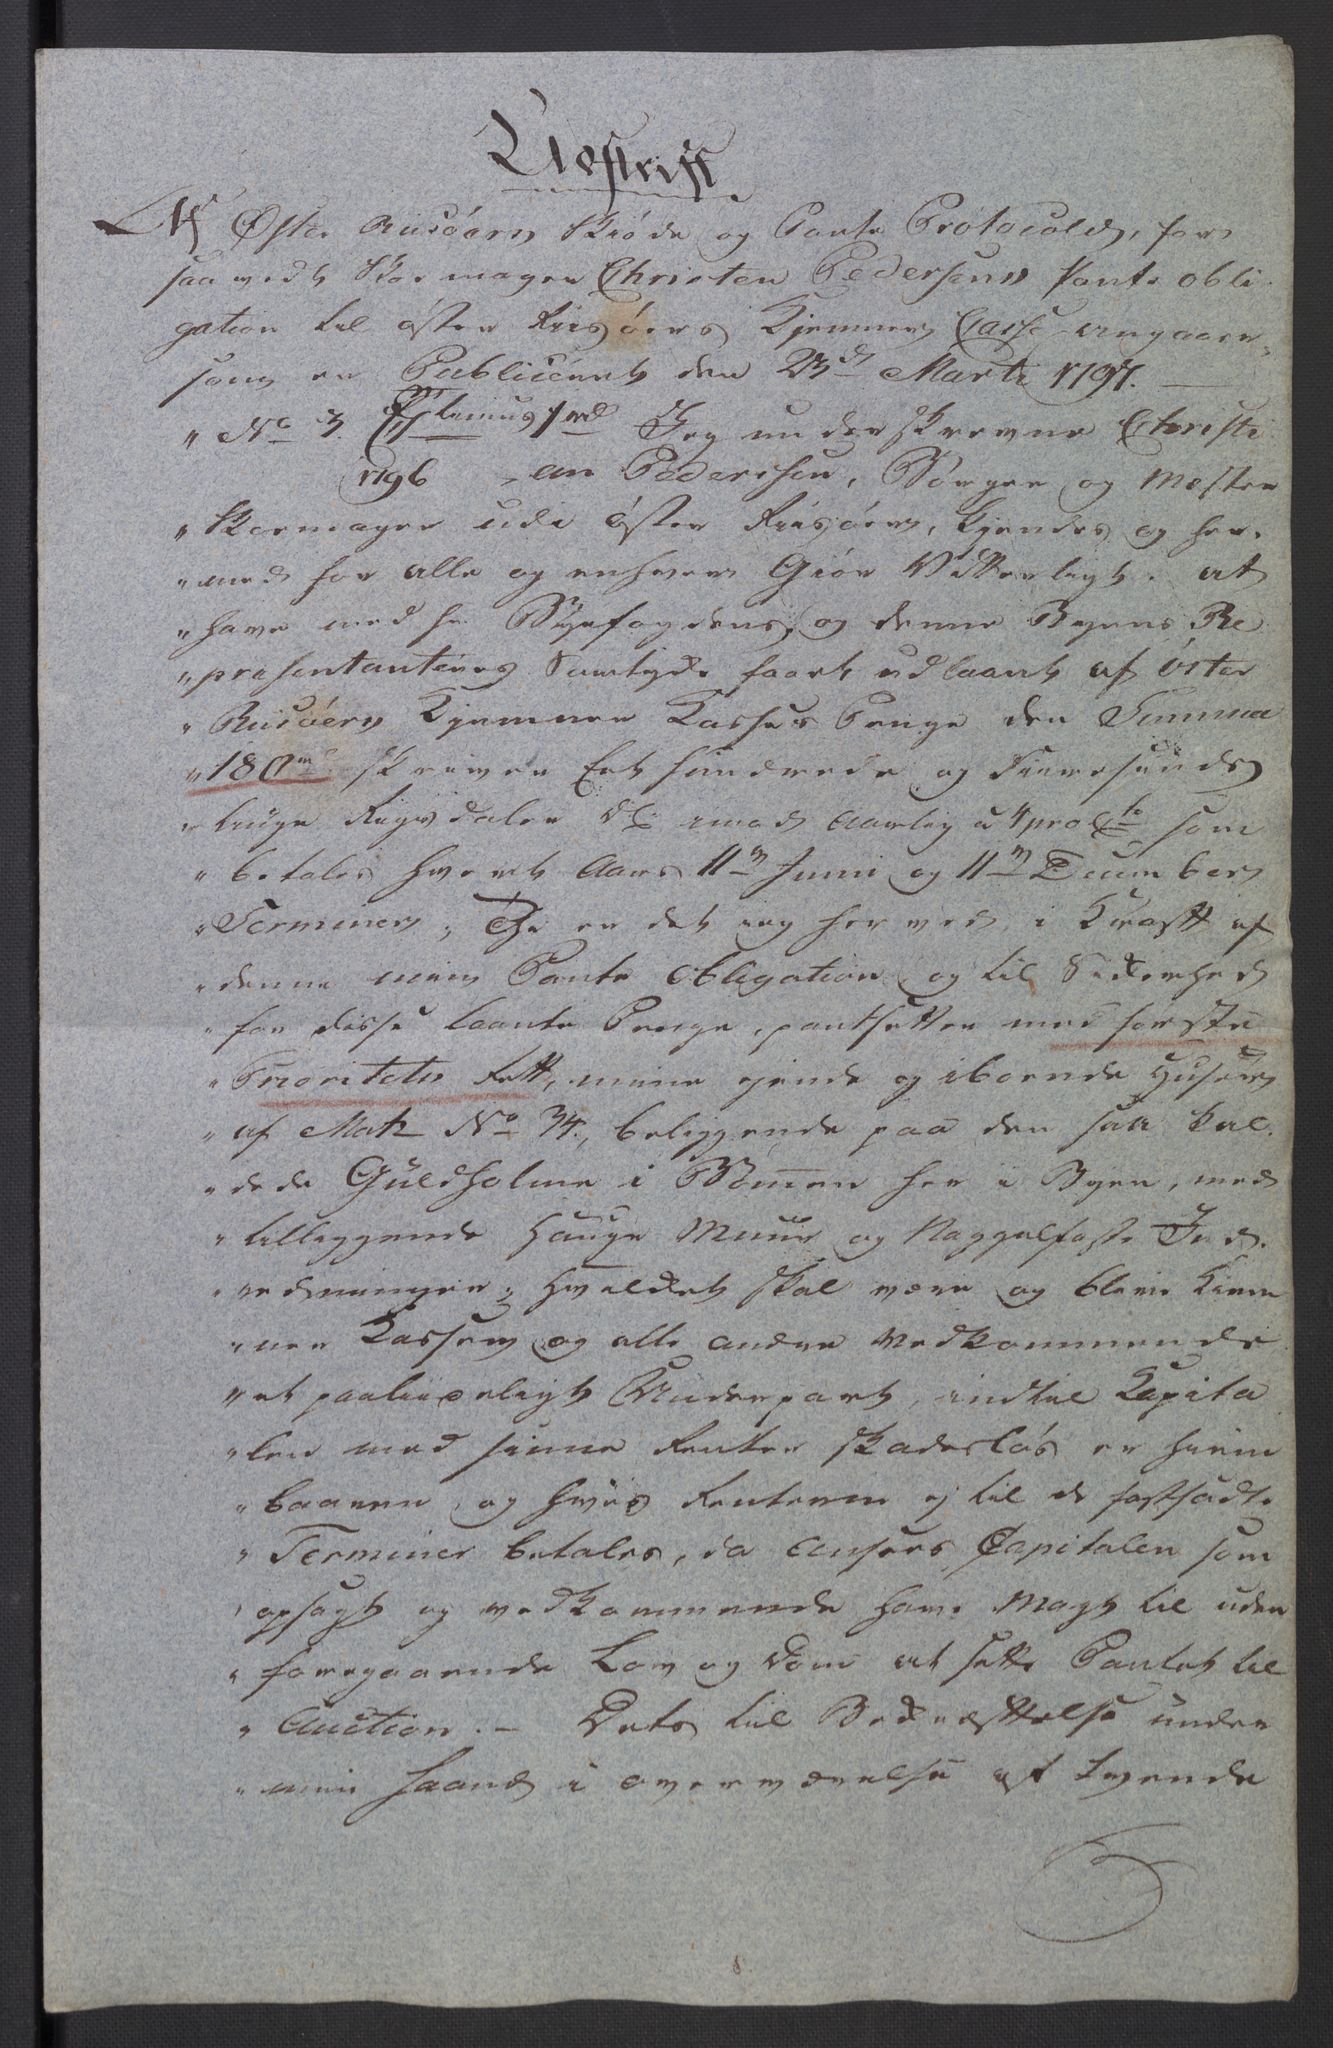 Udskrift
Af Øster Riisöers Skiöde og Pante Protocold, for
saavidt Skoemager Christen Pedersens Pante obli
gation til öster Riisöers Kjemner Casse angaaer,
som er Publiceret den 23d Marti 1797.
" No 3. 1 rd Jeg underskrevne Christi
1796 an Pedersen, Borger og Mester
" Skoemager udi öster Riisöer, Kjendes og her-
" med for alle og enhver Giör Vitterligt, at
" have med hr Byefogdens, og denne Byens Re
" præsentanteres Samtyke faaet udlaant af öster
" Riisöers Kjemner Kasses Penge den Summa
" 180 rd skriver Eet hundrede og Fiiresinds
" tiuge Rigsdaler DC: imod Aarlig a 4 pro Cto som
" betales hvert Aars 11te Junii og 11te December
" Terminer; Thi er det ieg herved i Kraft af
" denne min Pante Obligation og til Sikkerhed
" for disse laante Penge, pantsetter med förste
" Prioritets Rett, mine ejende og iboende Huser
" af Matr No 34., beliggende paa den saa kal-
" dede Guldholme i Bömmen her i Byen, med
" tilliggende Hauge Muur og Naggelfaste Ind-
" redninger; hvilket skal være og blive Kiem
" ner Kassen og alle andre Vedkommende
" et paalideligt Underpant, indtil Kapita
" len med sinne Renter skadeslös er hiem
" baaren, og hvis Renterne ej til de fastsadte
" Terminer betales, da ansees Capitalen som
" opsagt og vedkommende have Magt til uden
" foregaaende Lov og Dom at sætte Pantet til
" Auction. - Dets til Bekræftelse under
" min Haand i overværelse af tvende